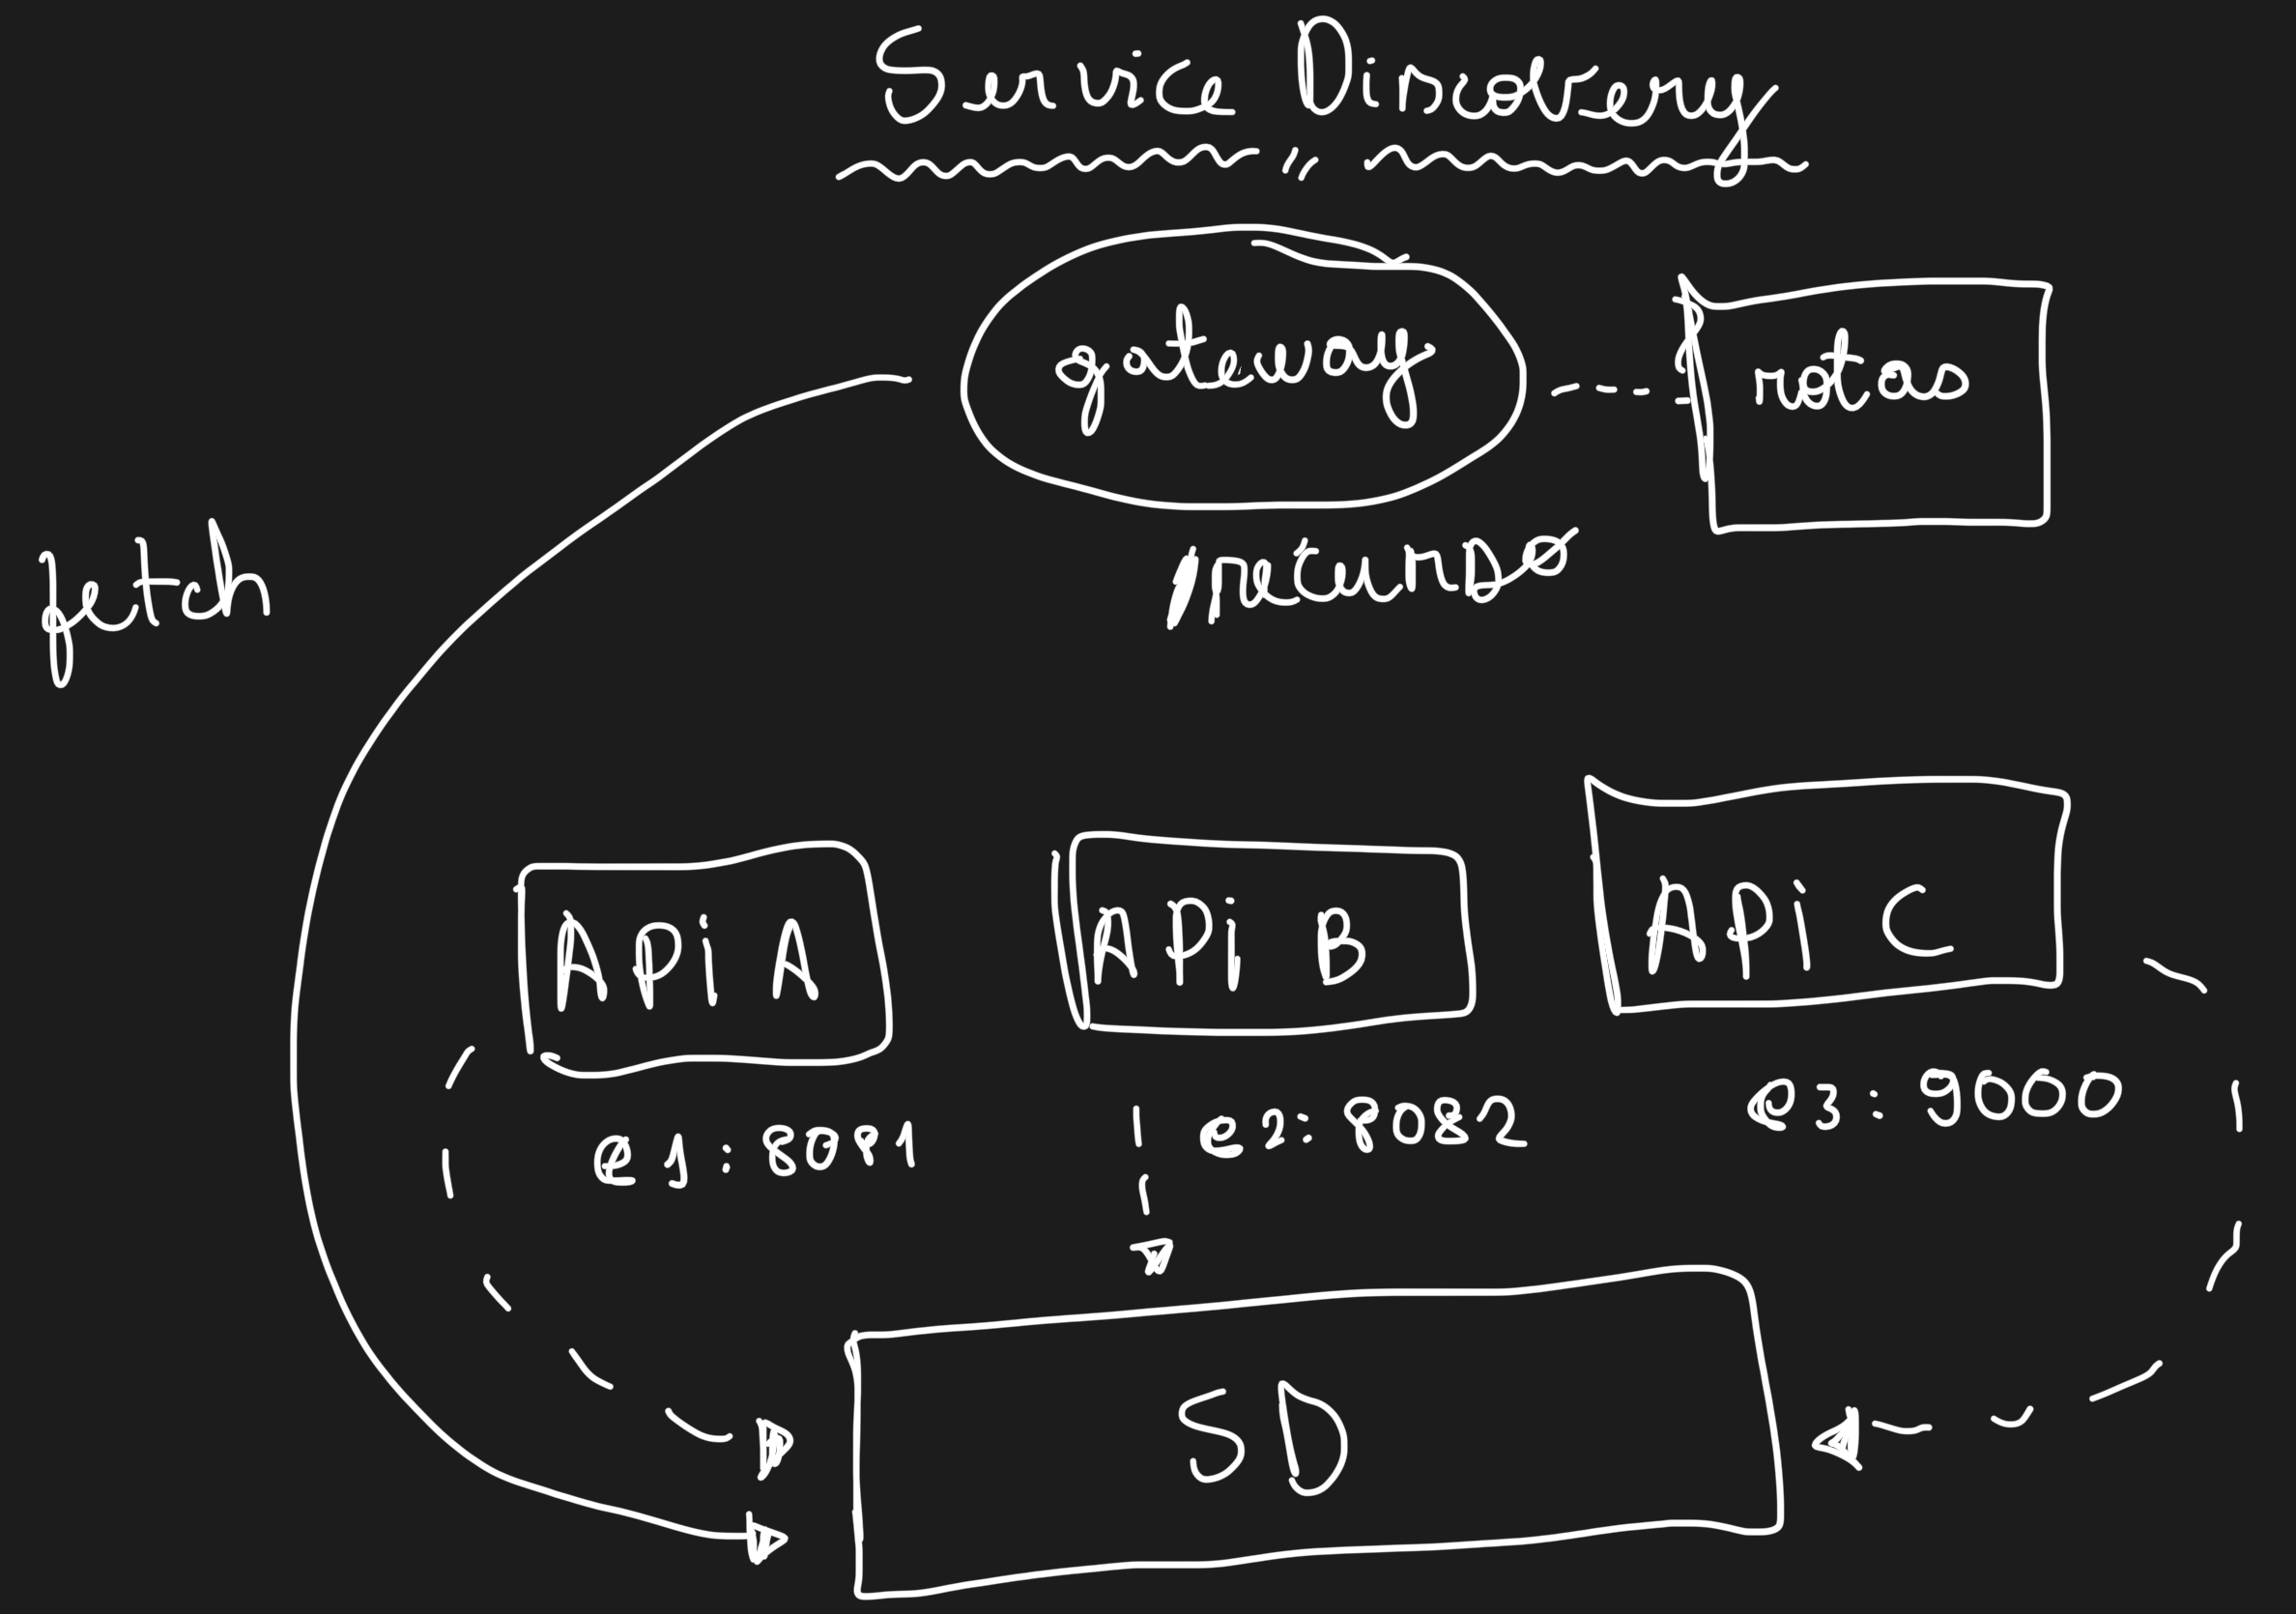 Service Discovery
gateway
rotas
/recurso
fetch
APi A
APi B
APi C
e1:8091
e2:8082
e3:9000
SD